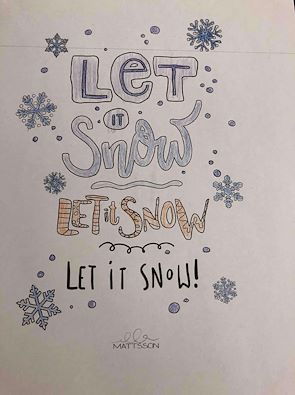 LET
it
Snow
LET it SNOW
LET iT SNOW!
MATTSSON